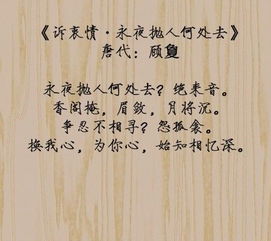 《诉衷情·永夜抛人何处去》
唐代：顾夐
永夜抛人何处去？绝来音。
香阁掩，眉敛，月将沉。
争忍不相寻？怨孤衾。
换我心，为你心，始知相忆深。